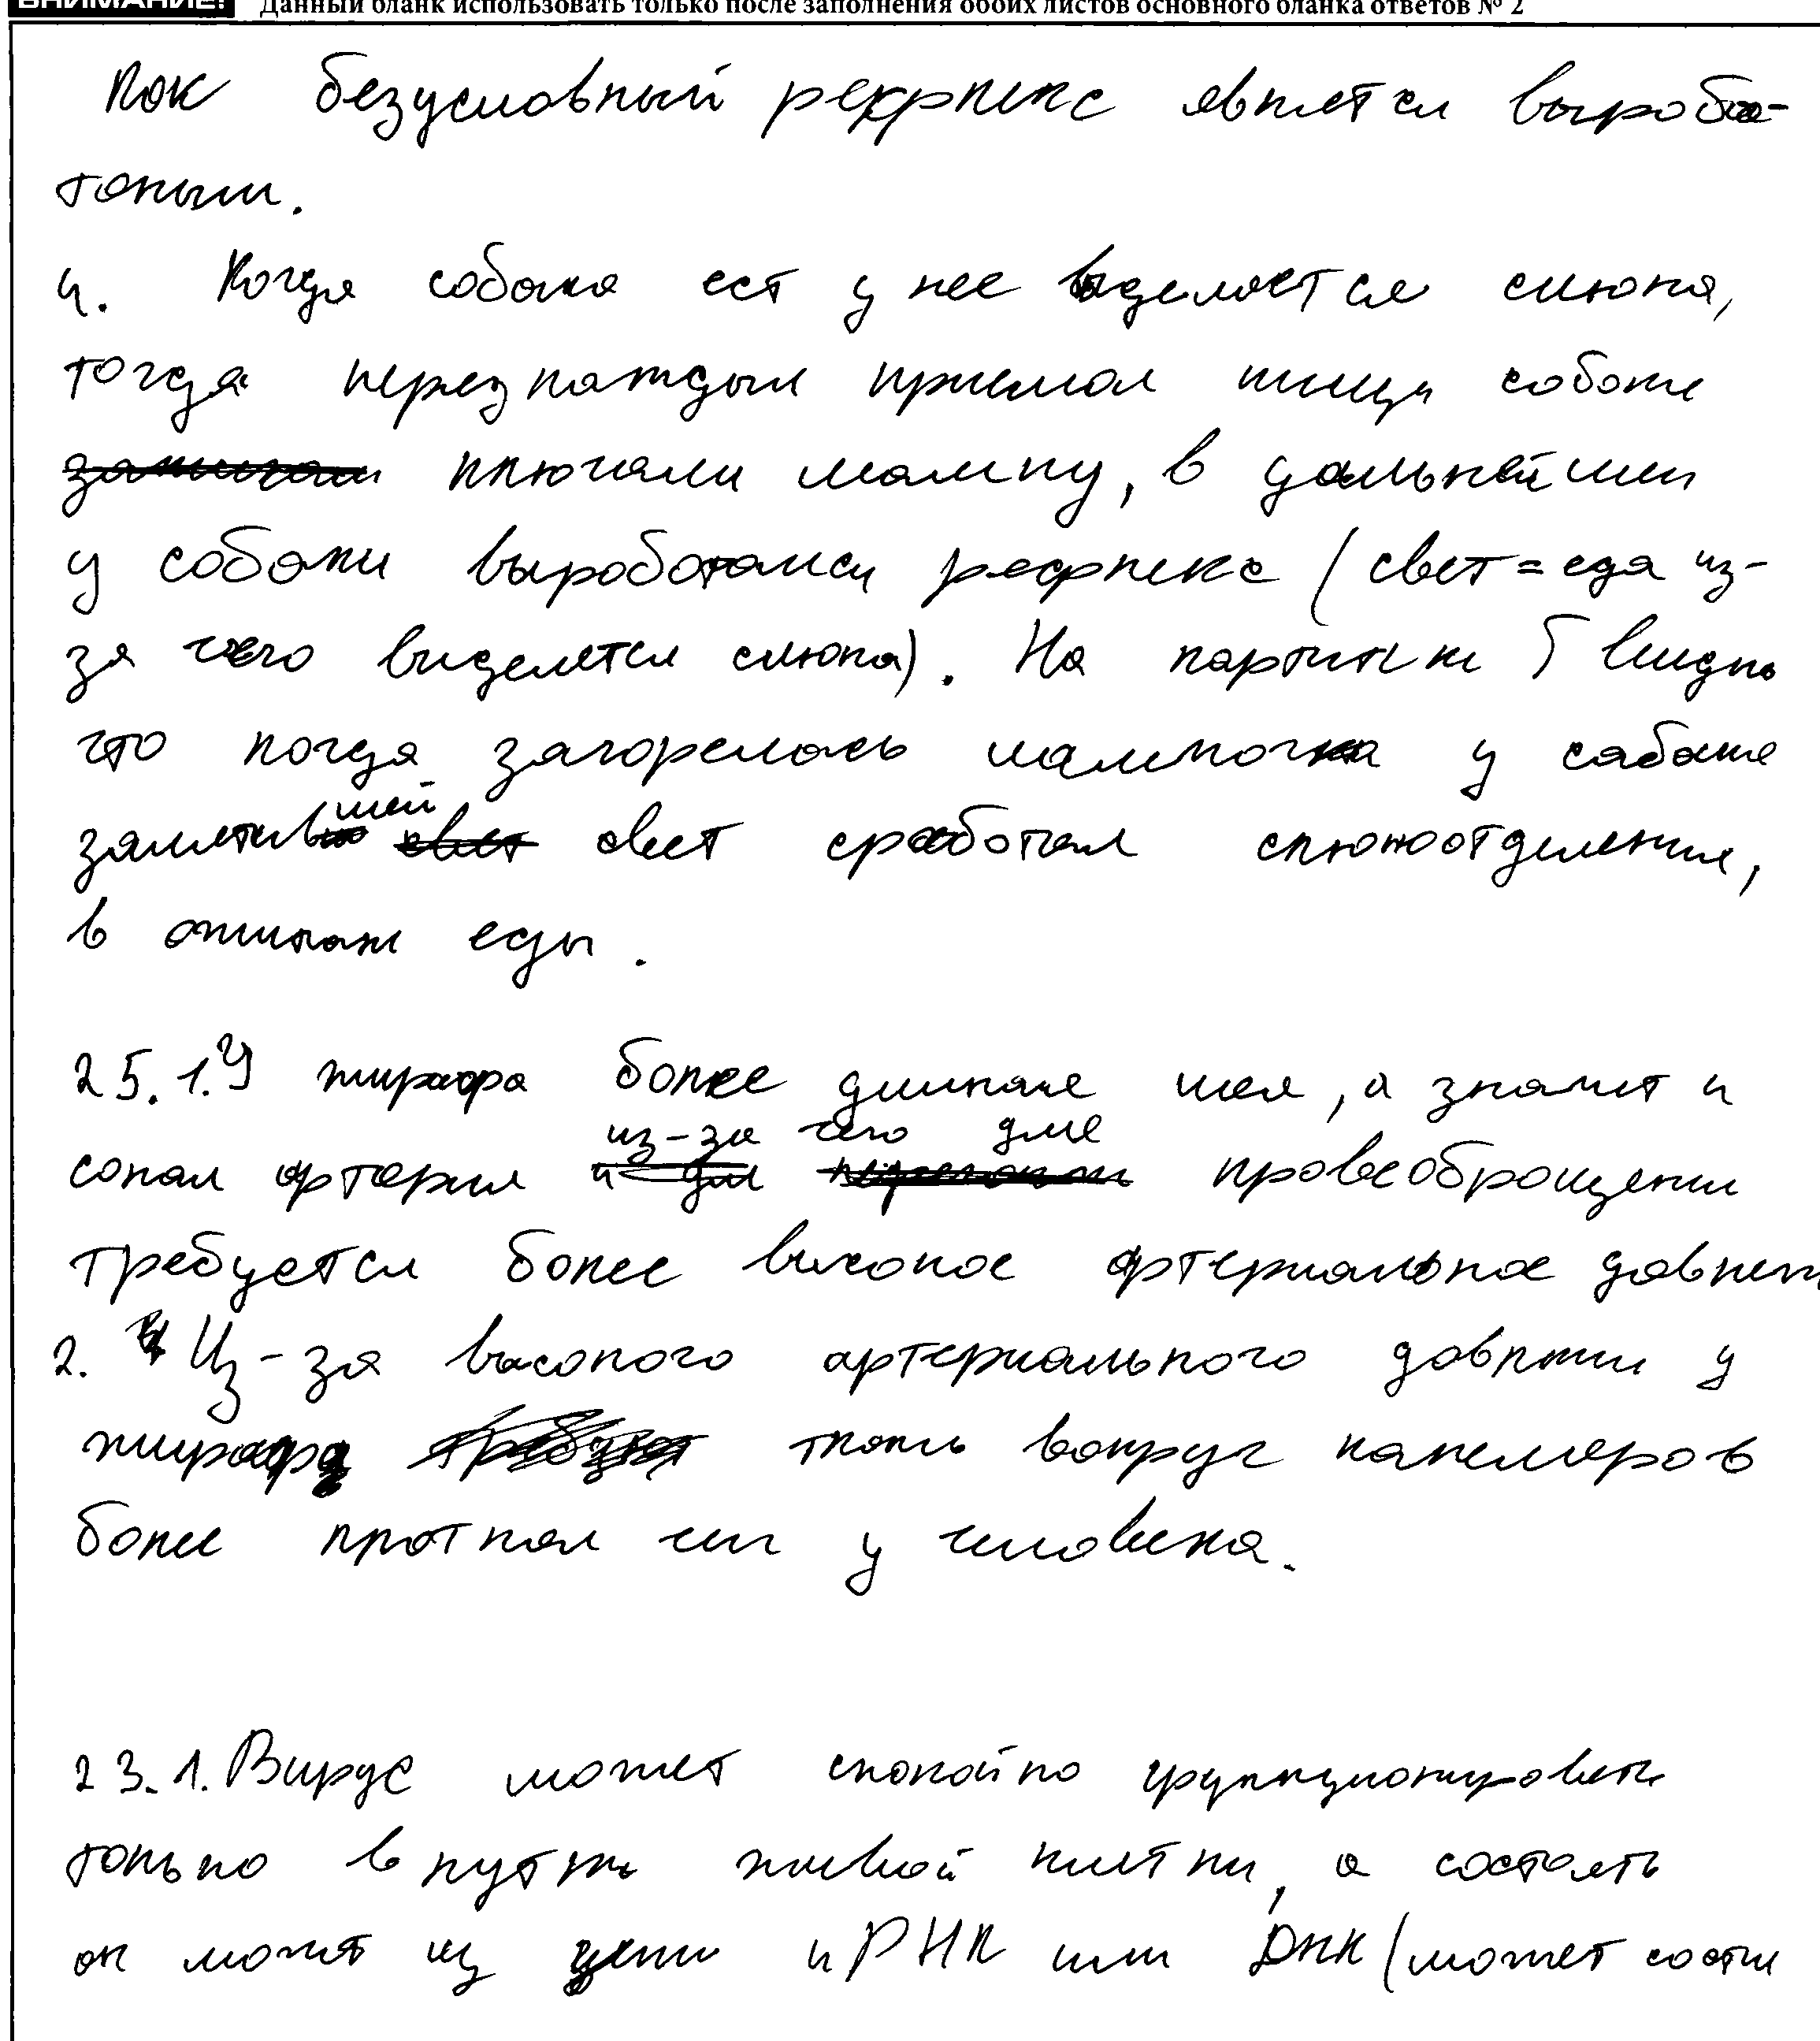 ВНИМАНИЕ! Данный бланк использовать только после заполнения обоих листов основного бланка ответов № 2
Как безусловный рефлекс является вырабо-
таным.
4. Когда собака ест у нее выделяется слюна,
тогда перед каждым приемом пищи собаке
ключали лампу, в дальнейшем
у собаки выработался рефлекс (свет = еда из-
за чего виделется слюна). На картинке Г видно
что когда загорелась лампочка у сабаке
заметившей свет сработал слюноотделение,
в ожидание еды.
25. 1. У жирафа более длинная шея, а значит и
сонам артерия из-за чего для кровеобращении
требуется более высокое артериальное давлен
2. Из-за высокого артериального давлении у
жирафа ткань вокруг капеляров
более проткная чем у человека.
23. 1. Вирус может спокойно функционировать
только внутри живой клетки, а состоять
он может из цепи иРНК или ДНК (может сости